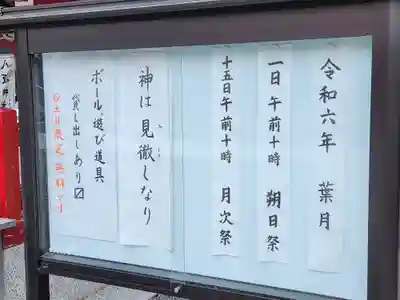 令和六年 葉月
一日 午前十時 朔日祭
十五日 午前十時 月次祭
神は見徹しなり
ボール、遊び道具
貸し出しあり